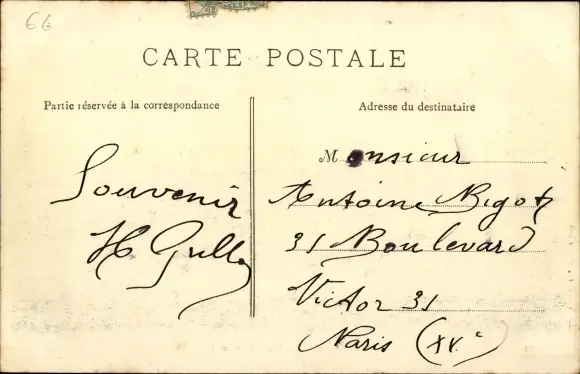 6€
CARTE POSTALE
Partie réservée à la correspondance
Adresse du destinataire
Souvenir
Monsieur
Antoine Bigot
31 Boulevard
Victor 31
Paris (XVe)